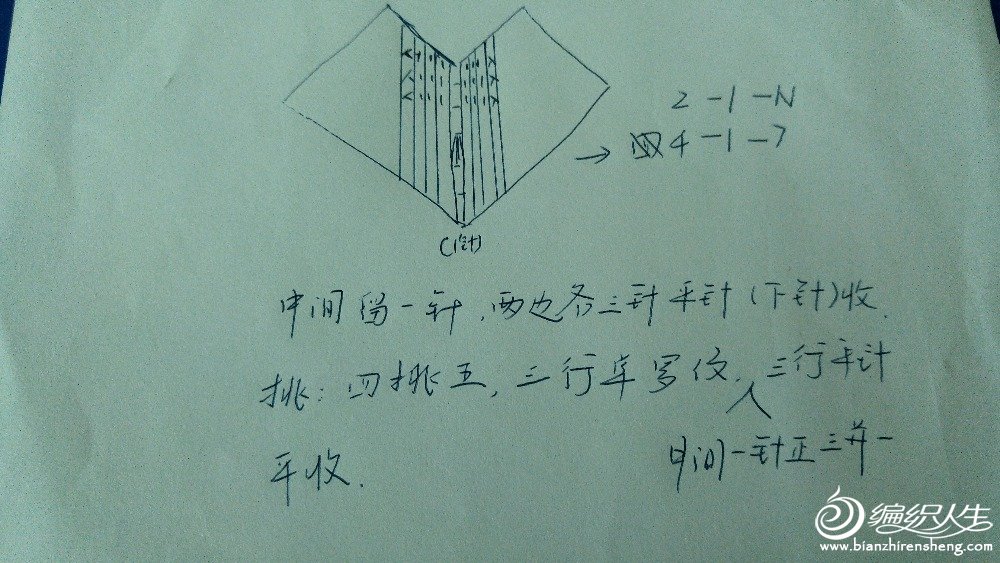 2-1-N
→ 4-1-7
(1针)
中间留一针,两边各三针平针(下针)收.
挑:四挑五,三行单罗纹,三行平针
人
平收.
中间一针正三并一
编织人生
www.bianzhirensheng.com